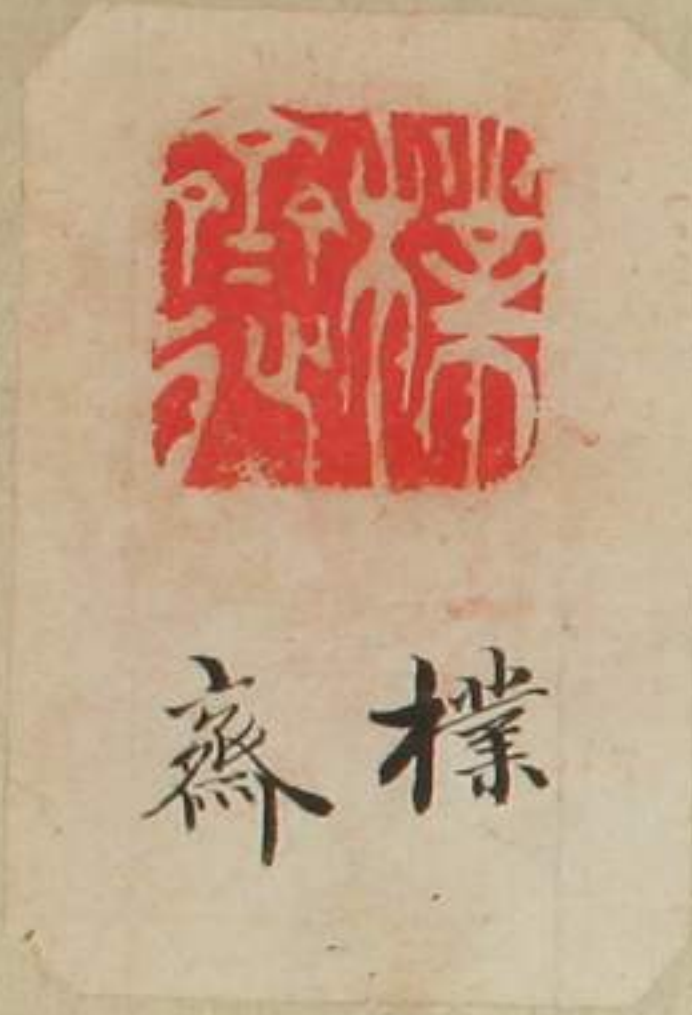 樸齋
樸齋